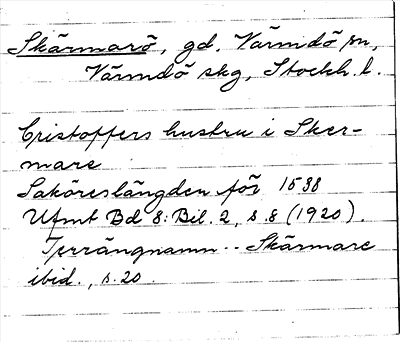 Skärmarö, gd. Värmdö sn,
Värmdö skg, Stockh. l.
Cristoffers hustru i Sker-
mare
Saköreslängden för 1538
Ufmt Bd 8: Bil. 2, s. 8 (1920).
Terrängnamn -- Skärmare
ibid., s. 20